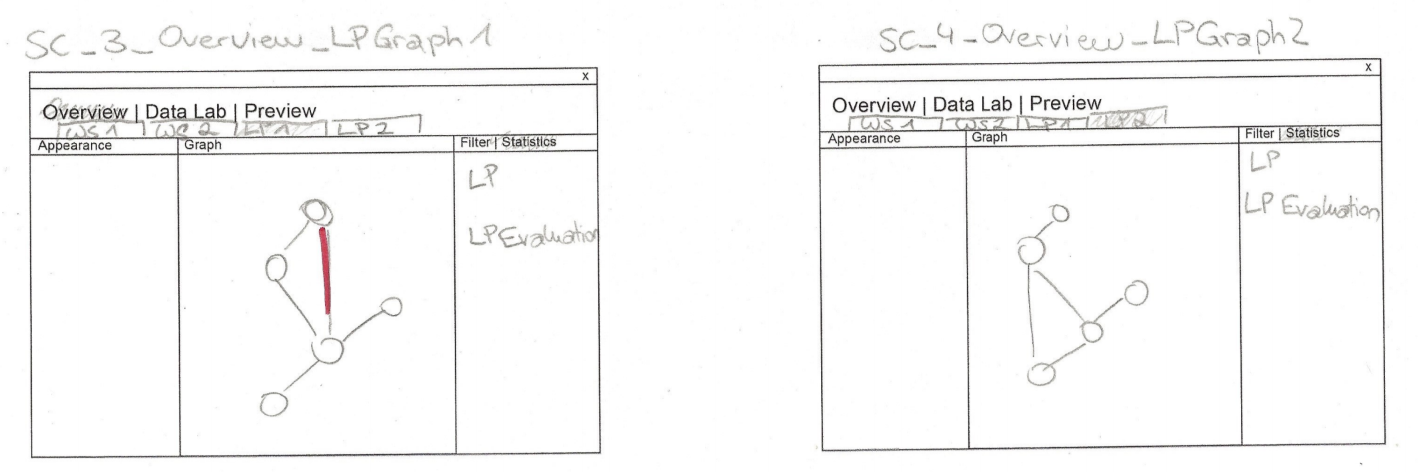 SC_3_Overview_LPGraph1
x
Overview | Data Lab | Preview
WS1 WS2 LP1 LP2
Appearance Graph Filter | Statistics
LP
LP Evaluation
SC_4_Overview_LPGraph2
x
Overview | Data Lab | Preview
WS1 WS2 LP1 LP2
Appearance Graph Filter | Statistics
LP
LP Evaluation